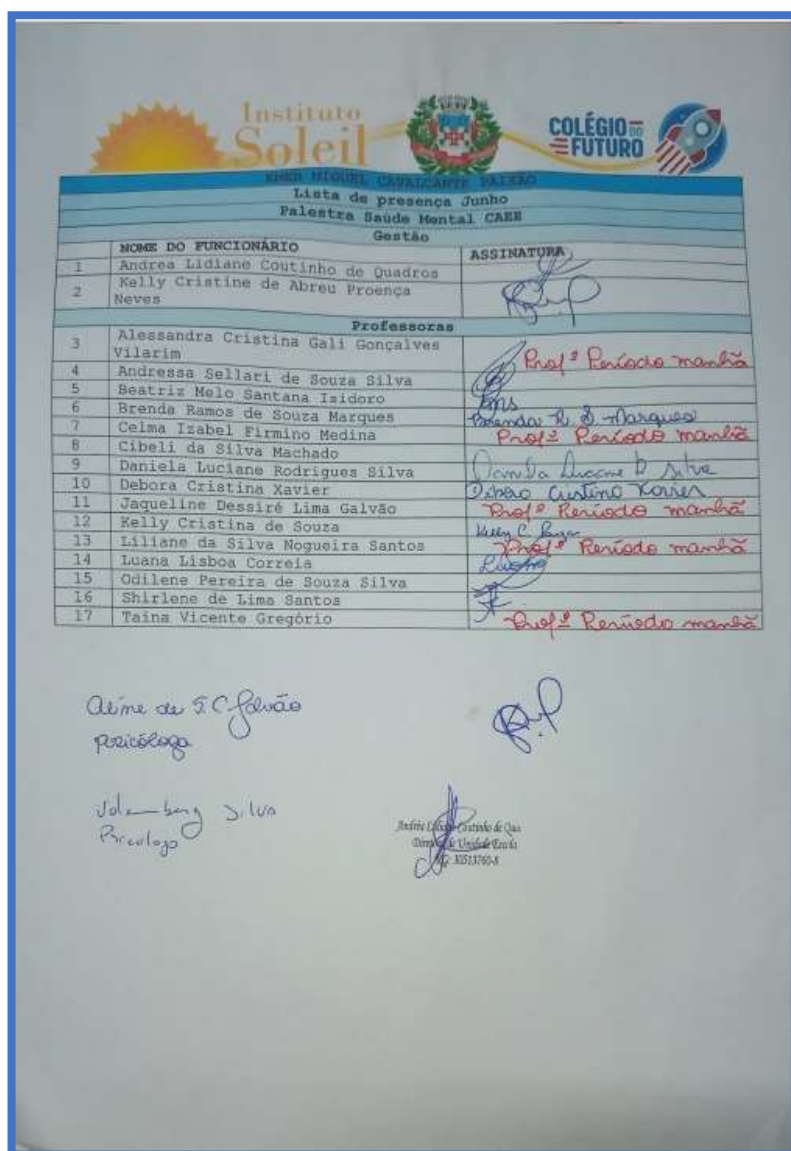 Instituto
Soleil
COLÉGIO DO
FUTURO
EMEB MIGUEL CAVALCANTE PAIXÃO
Lista de presença Junho
Palestra Saúde Mental CAEE
Gestão
NOME DO FUNCIONÁRIO ASSINATURA
1 Andrea Lidiane Coutinho de Quadros
2 Kelly Cristine de Abreu Proença
Neves
Professoras
3 Alessandra Cristina Gali Gonçalves
Vilarim Profª Período manhã
4 Andressa Sellari de Souza Silva
5 Beatriz Melo Santana Isidoro Bms
6 Brenda Ramos de Souza Marques Brenda R. S. Marques
7 Celma Izabel Firmino Medina Profª Período manhã
8 Cibeli da Silva Machado
9 Daniela Luciane Rodrigues Silva
10 Debora Cristina Xavier
11 Jaqueline Dessiré Lima Galvão Profª Período manhã
12 Kelly Cristina de Souza Kelly C. Souza
13 Liliane da Silva Nogueira Santos Profª Período manhã
14 Luana Lisboa Correia Luana
15 Odilene Pereira de Souza Silva
16 Shirlene de Lima Santos
17 Taina Vicente Gregório Profª Período manhã
Aline de S. C. Galvão
psicóloga
Silva
Psicologo
Coutinho de Qua
Unidade Escola